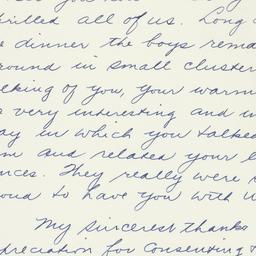 thrilled all of us. Long a
e dinner the boys rema
round in small cluster
lking of you, your warm
very interesting and in
ay in which you talked
m and related your l
nces. They really were s
oud to have you with u
My sincerest thanks
preciation for consenting t